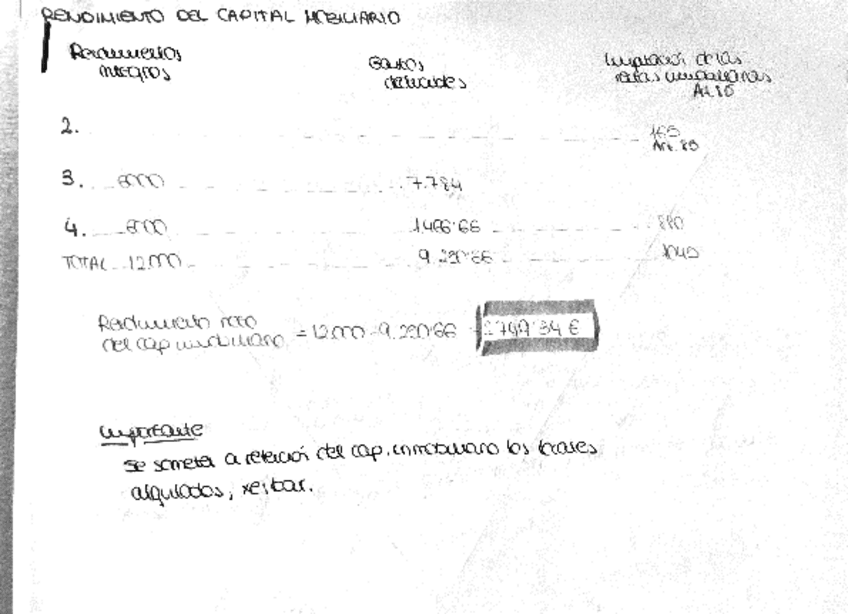 RENDIMIENTO DEL CAPITAL MOBILIARIO
Rendimientos Gastos Imputación de las
íntegros deducibles rentas inmobiliarias
Art 85
2. 165
Art. 85
3. 6000 7.784
4. 6000 1466'66 880
TOTAL 12.000 9.250'66 1045
Rendimiento neto
del cap inmobiliario = 12.000 - 9.250'66 2749'34 €
Importante
Se someten a retención del cap. inmobiliario los locales
alquilados, xej: bar.